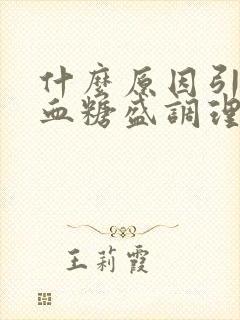 什麼原因引
血糖盛調理
王莉霞